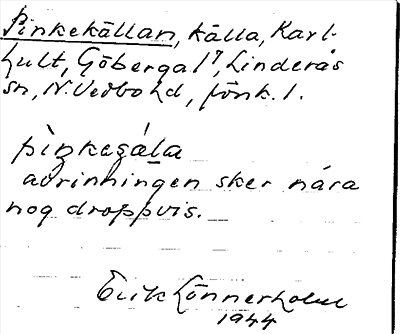 Pinkekällan, källa, Karl-
hult, Göberga 1⁷, Linderås
sn, N. Vedbo hd, Jönk. l.
avrinningen sker nära
nog droppvis.
Erik Lönnerholm
1944